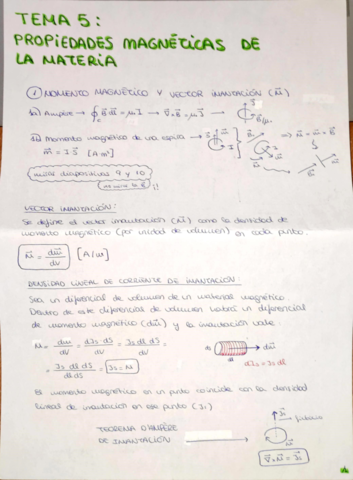 TEMA 5:
PROPIEDADES MAGNÉTICAS DE
LA MATERIA
① MOMENTO MAGNÉTICO Y VECTOR IMANTACIÓN (M⃗)
Ampère → ∮c B⃗ dl⃗ = μI → ∇⃗×B⃗ = μJ⃗ →
Momento magnético de una espira →
m⃗ = I·S⃗ [A·m²]
mirar diapositivas 9 y 10
VECTOR IMANTACIÓN:
Se define el vector imantación (M⃗) como la densidad de
momento magnético (por unidad de volumen) en cada punto.
M⃗ = dm⃗/dV [A/m]
DENSIDAD LINEAL DE CORRIENTE DE IMANTACIÓN
Sea un diferencial de volumen de un material magnético.
Dentro de este diferencial de volumen habrá un diferencial
de momento magnético (dm⃗) y la imantación vale
M = dm/dV = dIs dS/dV = Js dl dS/dV =
= Js dl dS/dl dS = Js = M
dm⃗
dl
dIs = Js dl
El momento magnético en un punto coincide con la densidad
lineal de imantación en ese punto (Js)
TEOREMA D'AMPÈRE
DE IMANTACIÓN
J⃗s
M⃗
∇⃗×M⃗ = J⃗s